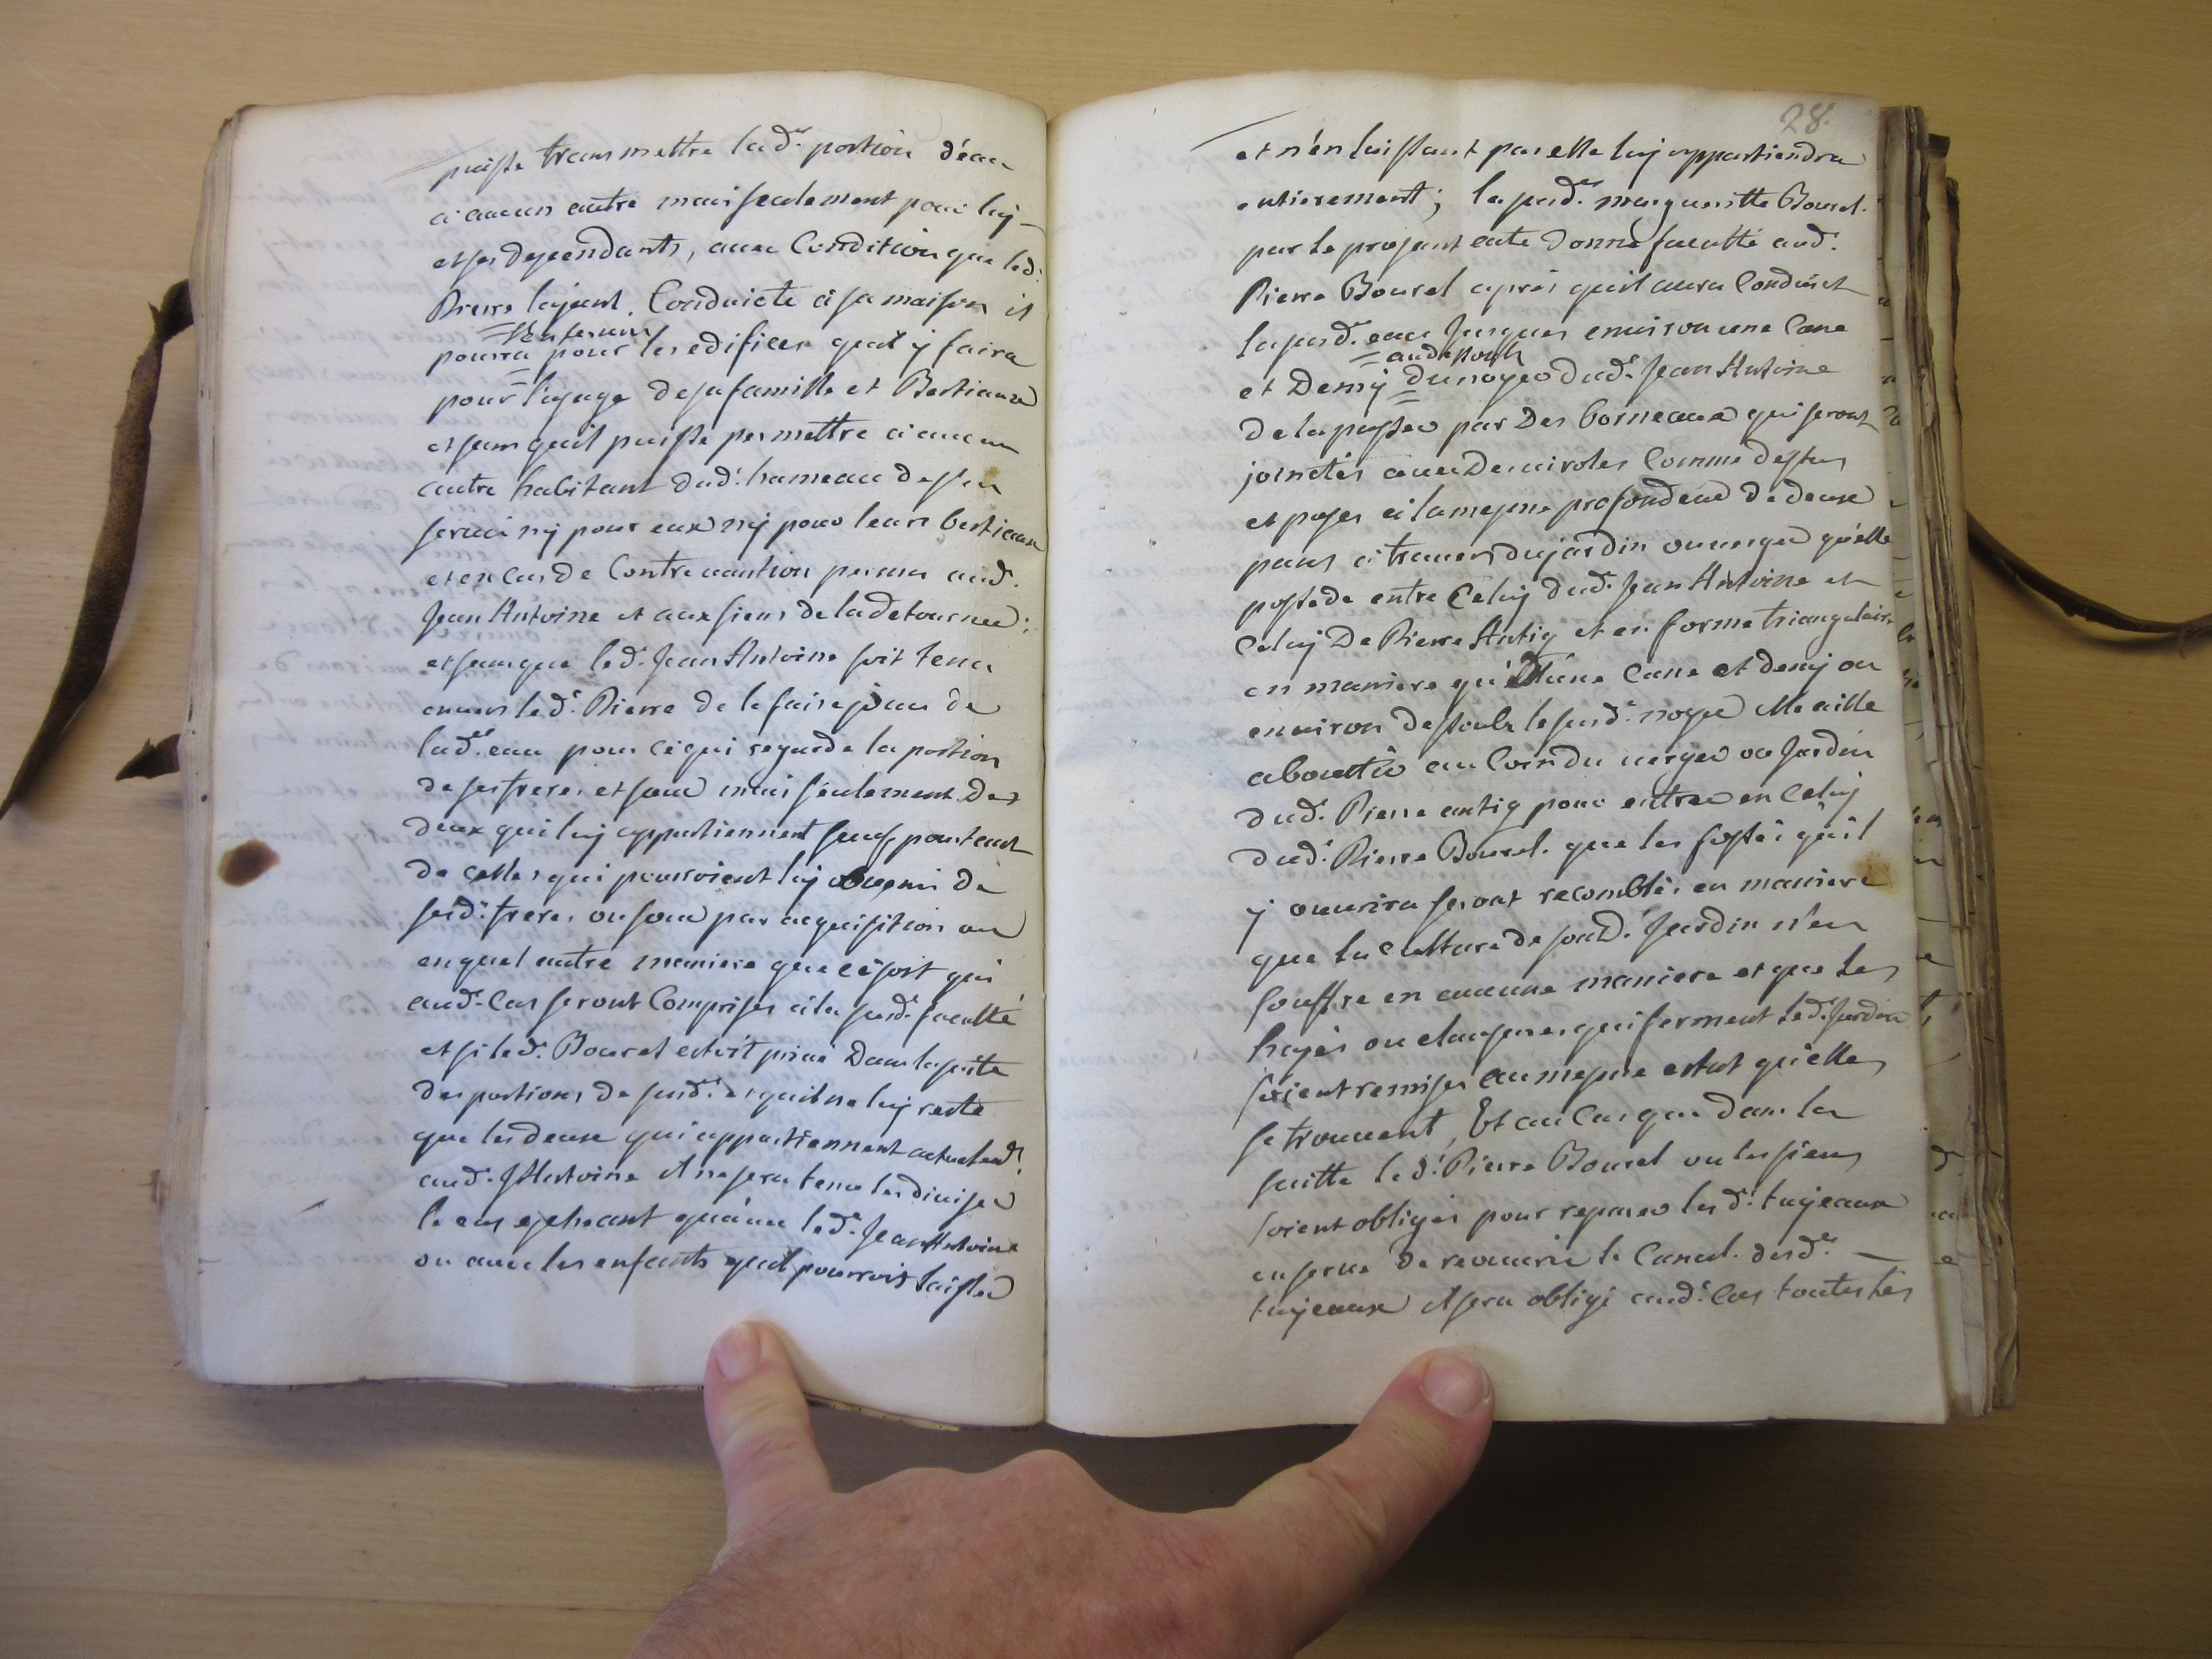 puisse transmettre lad.e portion d'eau
a aucun autre mais seulement pour luy
et ses dependants, avec Condition que led.
Pierre layant Conduicte a sa maison il
s'en servir
pourra pour les edifices quil y faira
pour l'usage de sa famille et Bestiaux
et sans quil puisse permettre a aucun
autre habitant dud.t hameau de s'en
servir ny pour eux ny pour leurs bestiaux
et en cas de Contravantion permis aud.
Jean Antoine et aux siens de la detourner;
et sans que led.t Jean Antoine soit tenu
envers led.t Pierre de le faire jouir de
lad.e eau pour ce qui regarde la portion
de ses freres et sœur mais seulement des
deux qui luy appartiennent sauf pourtant
de celles qui pourroient luy avenir de
sesd.ts freres ou sœur par acquisition ou
en quel autre maniere que ce soit qui
aud.t Cas seront Comprises a la susd.e faculté
et si led.t Bourel estoit privé Dans la suite
des portions de susd.ts et quil ne luy reste
que les deux qui appartiennent actuelem.t
aud.t J Antoine Il ne sera tenu les diviser
le cas escheant qu'avec led.t Jean Antoine
ou avec les enfants quil pourroit laisser
28.
et n'en laissant pas elle luy appartiendra
entierement; la susd.e margueritte Bourel
par le present acte donne faculté aud.t
Pierre Bourel apres quil aura Conduict
la susd.e eau Jusques environ une Cane
au dessoubs
et Demy du noyer dud.t Jean Antoine
de la passer par Des borneaux qui seront
joinctés avec De viroles Comme dessus
et posés a la mesme profondeur de deux
pans a travers du jardin ou verger qu'elle
possede entre Celuy dud.t Jean Antoine et
Celuy De Pierre Antiq et en forme triangulaire
en maniere qu'Dune Cane et demy ou
environ dessoubs le susd.t noyer Elle aille
aboutir au Coin du verger ou Jardin
dud.t Pierre antiq pour entrer en Celuy
dud.t Pierre Bourel que les fossés qu'il
y ouvrira seront recomblés en maniere
que la Culture de sond.t Jardin n'en
souffre en aucune maniere et que les
hayes ou clausures qui ferment led.t Jardin
soient remises au mesme estat qu'elles
se trouvent, Et au Cas que dans la
suitte led.t Pierre Bourel ou les siens
soient obligés pour reparer lesd.ts tuyeaux
de reouvrir le Canal desd.ts
tuyeaux Il sera obligé aud.t Cas toutes les